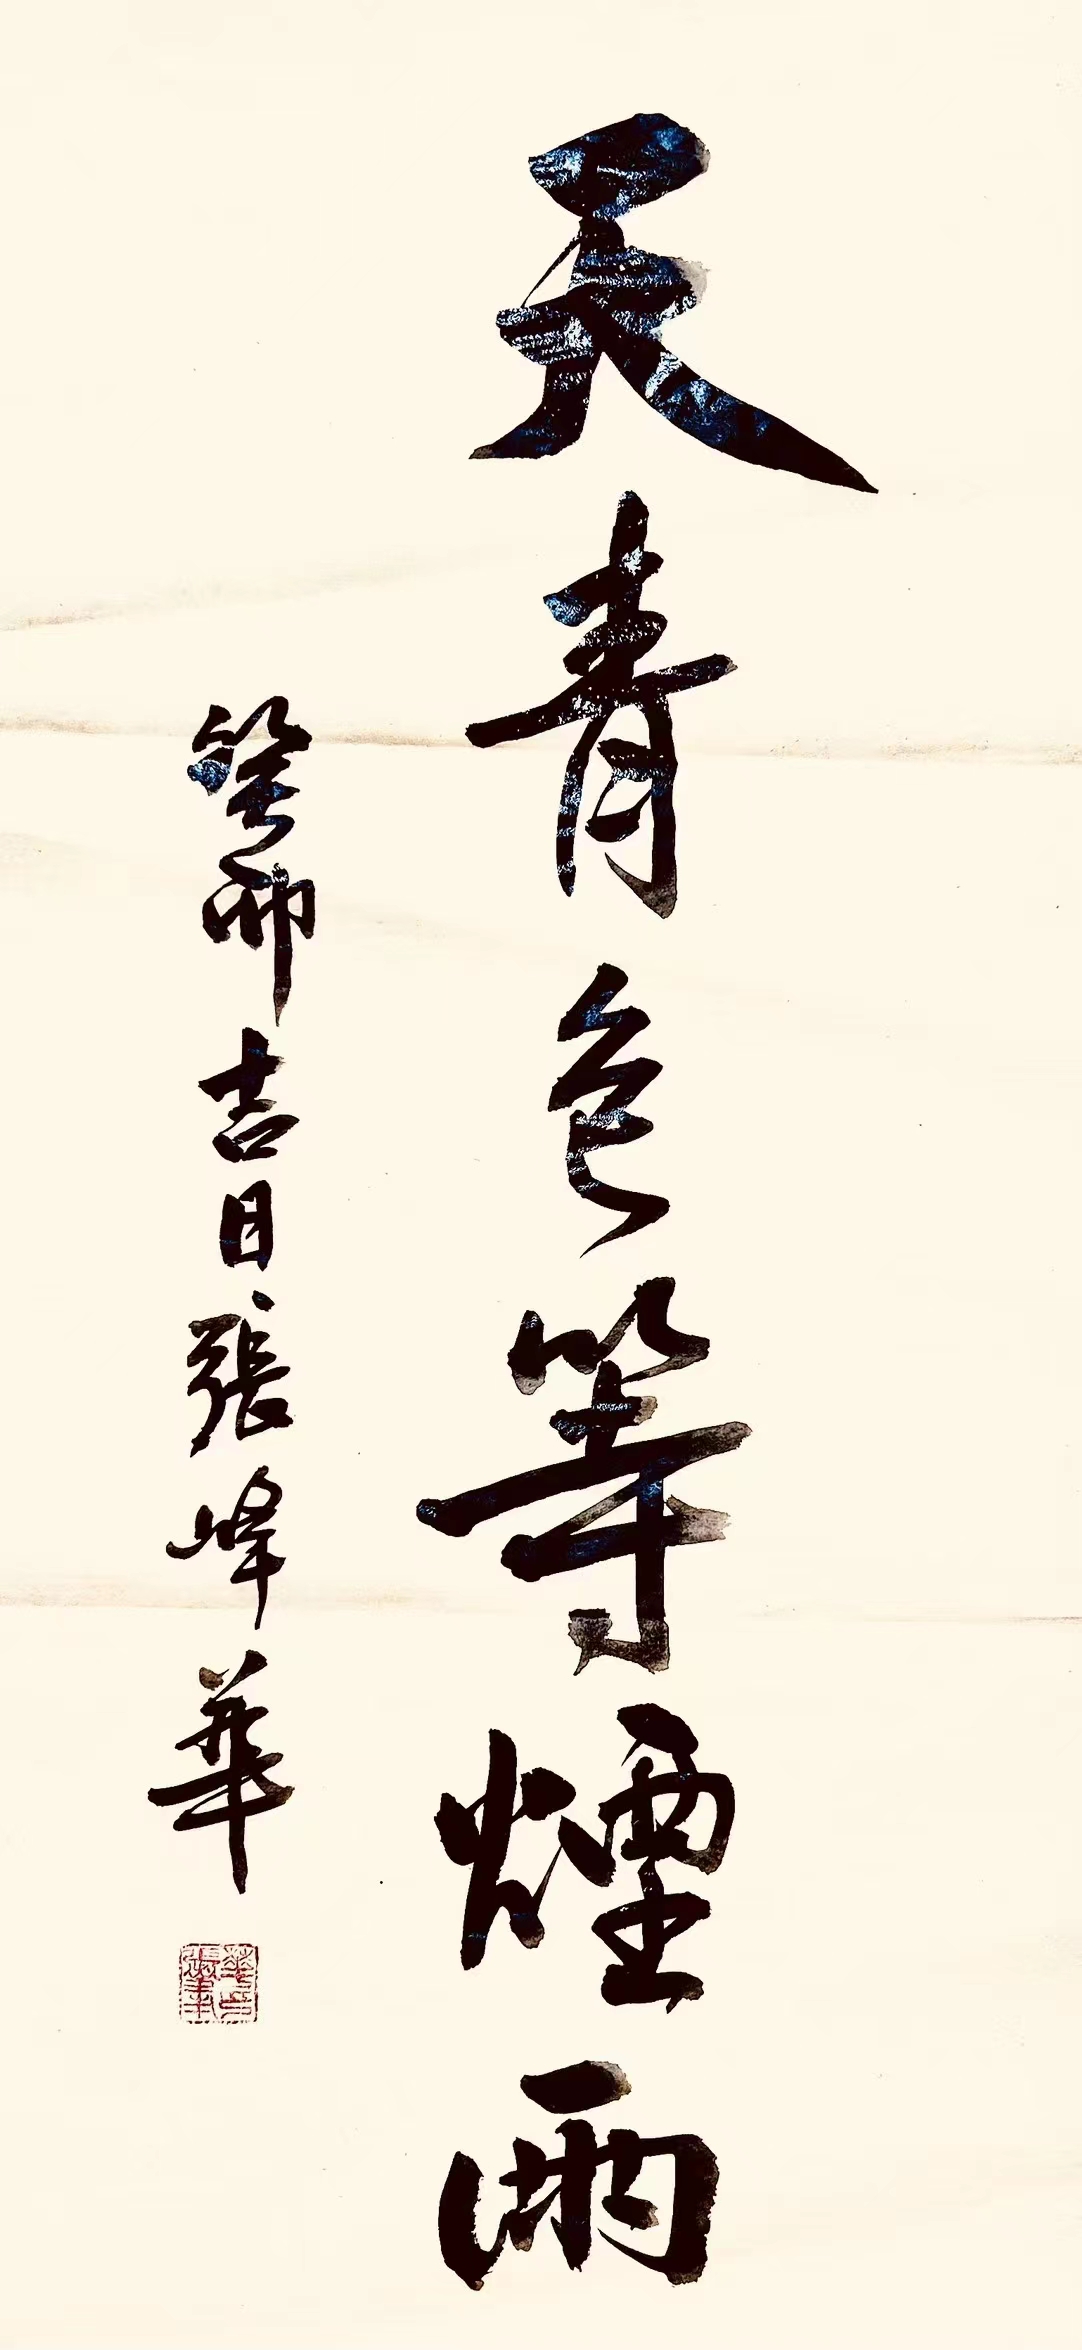 天青色等煙雨
癸卯吉日張峰華